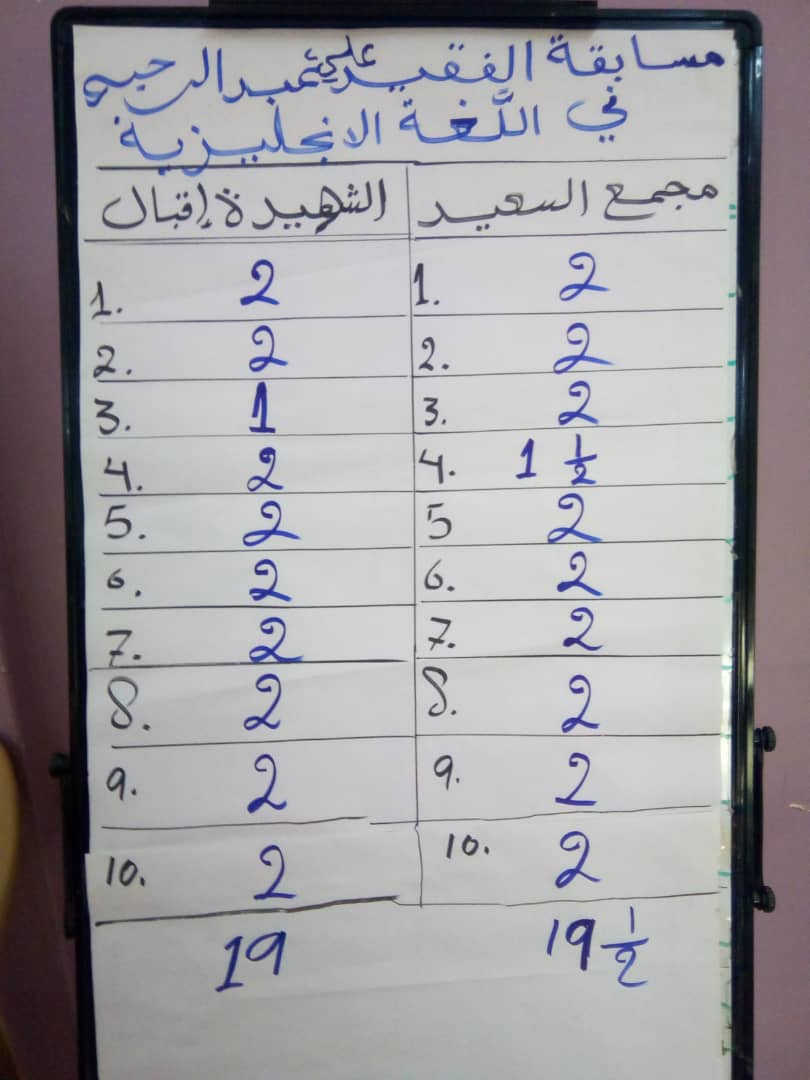 مسابقة الفقيد علي عبدالرحيم
في اللَّغة الانجليزية
مجمع السعيد الشهيدة إقبال
1. 2 1. 2
2. 2 2. 2
3. 2 3. 1
4. 1 1/2 4. 2
5 2 5. 2
6. 2 6. 2
7. 2 7. 2
8. 2 8. 2
9. 2 9. 2
10. 2 10. 2
19 1/2 19